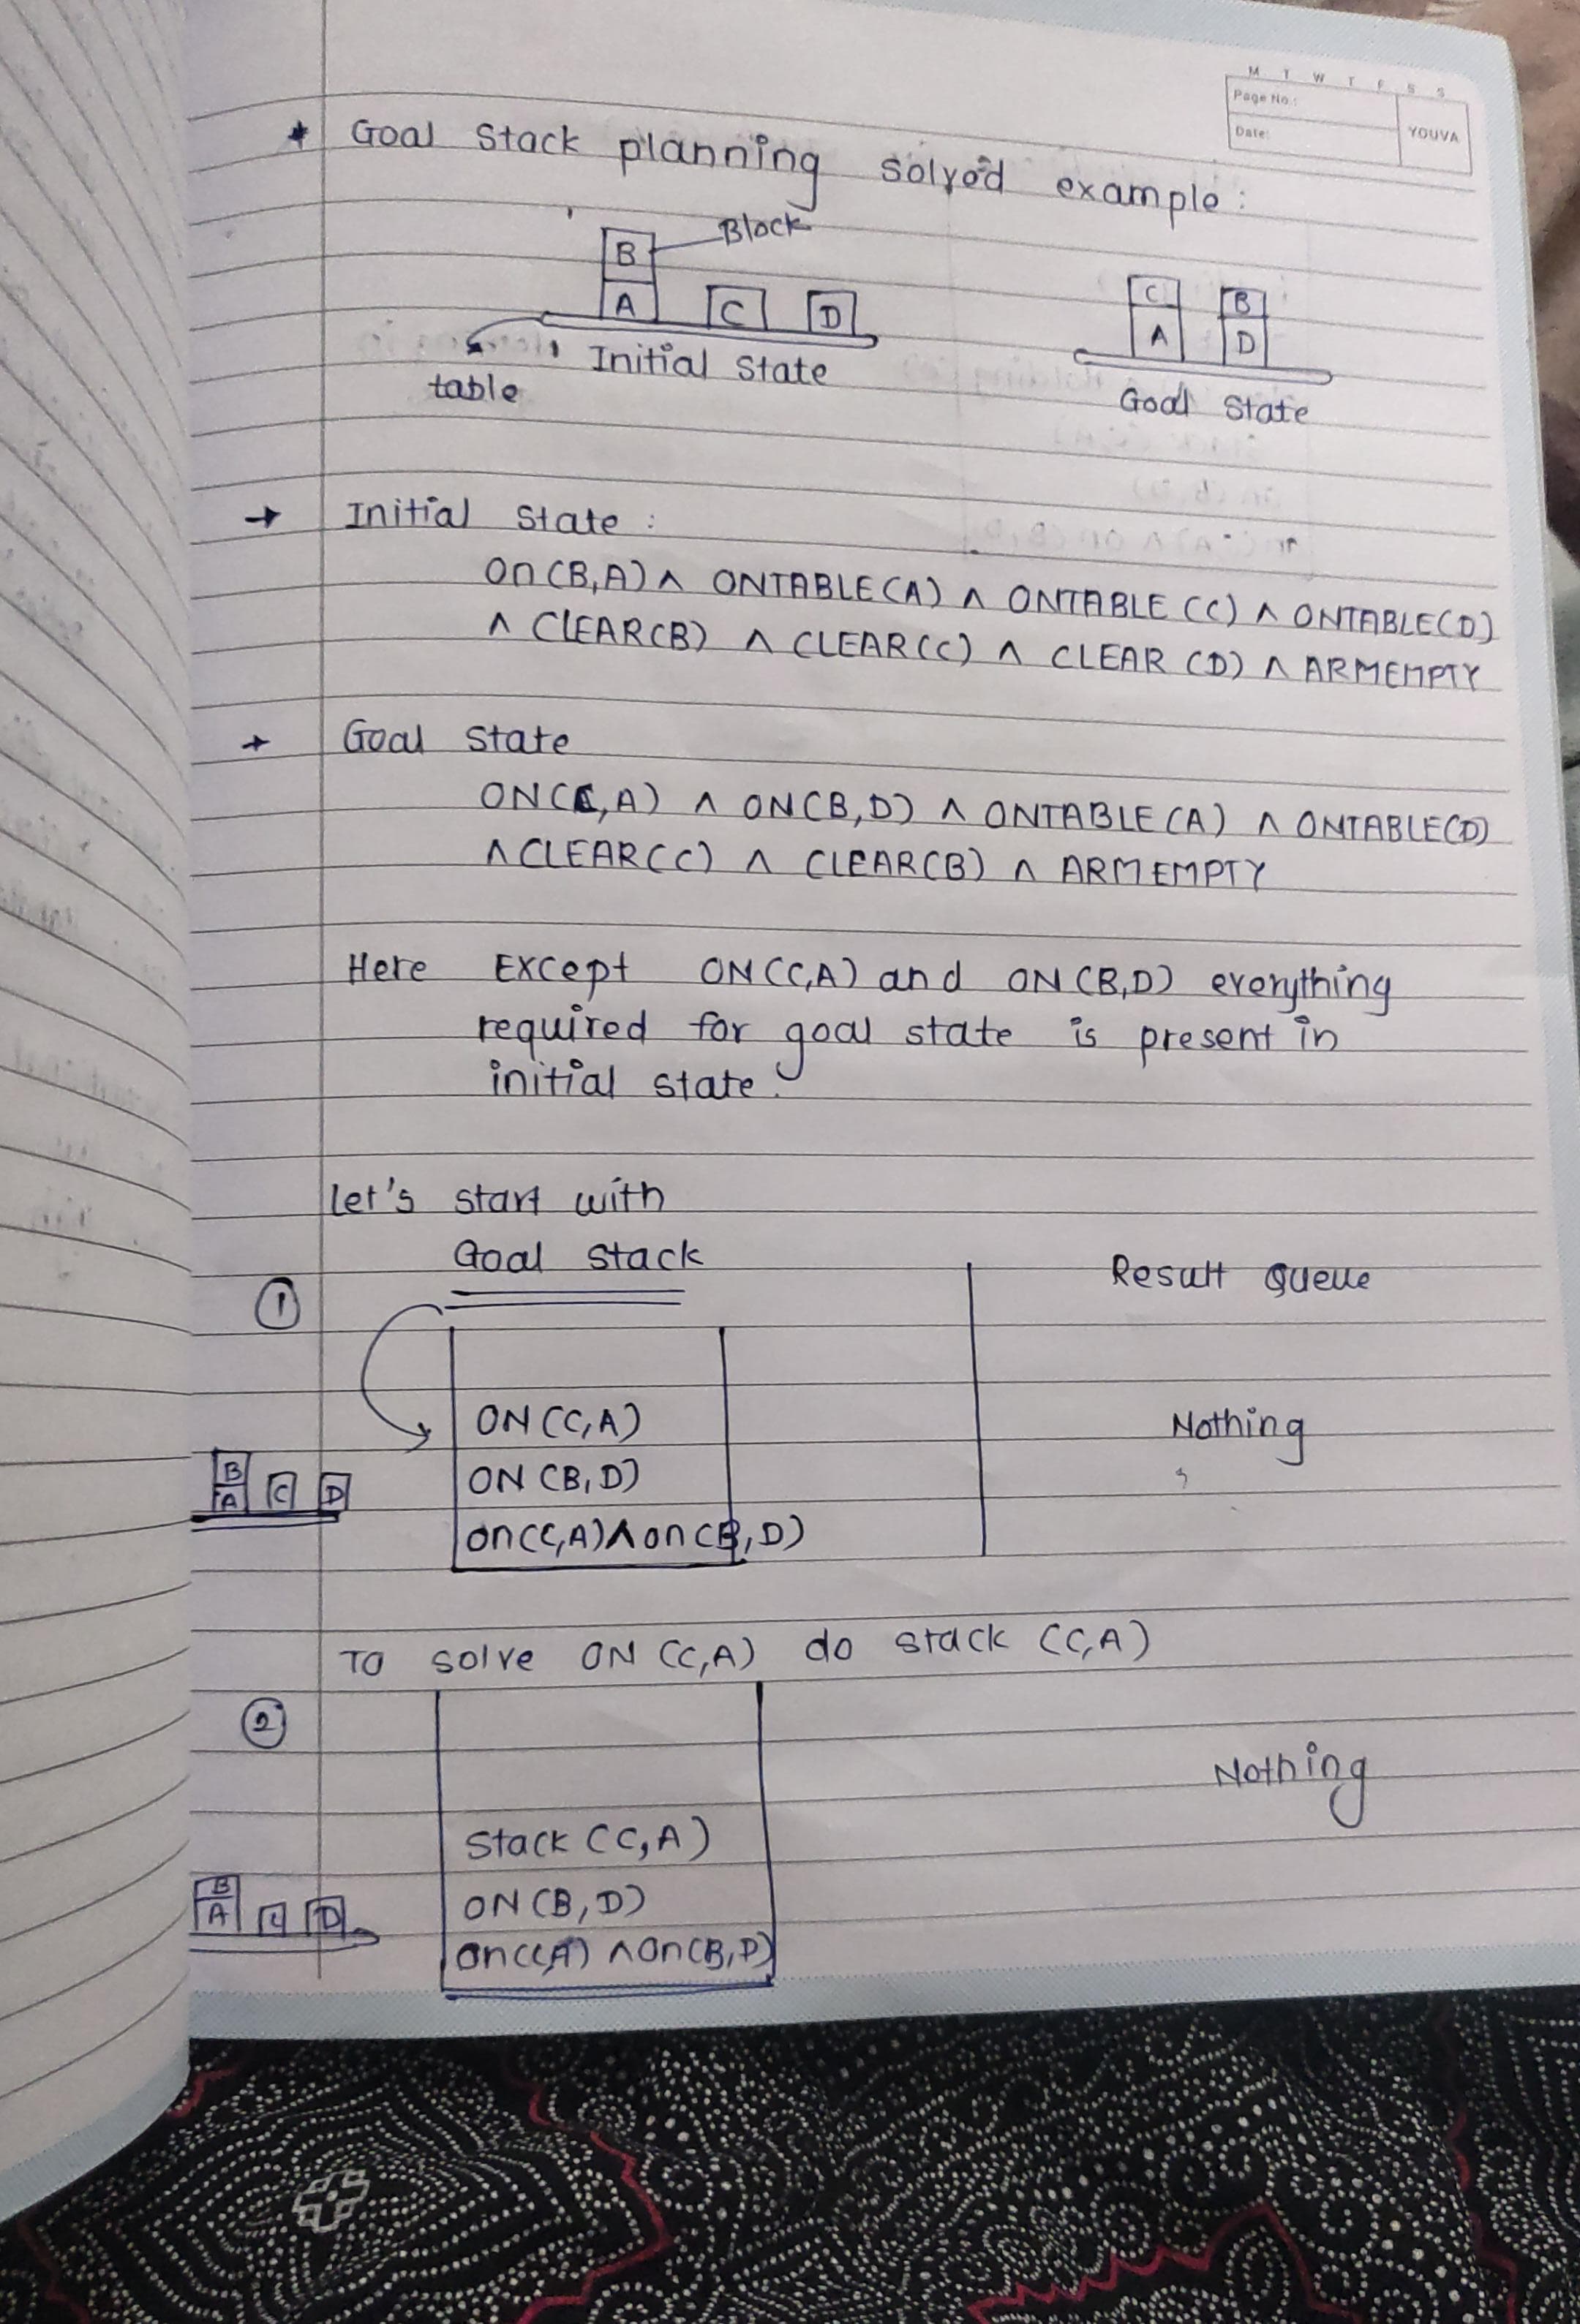 M T W T F S S
Page No.:
Date:
YOUVA
* Goal Stack planning solved example:
Block
B
A
C
D
table
Initial State
C
A
B
D
Goal State
→ Initial State:
On(B,A) ∧ ONTABLE(A) ∧ ONTABLE(C) ∧ ONTABLE(D)
∧ CLEAR(B) ∧ CLEAR(C) ∧ CLEAR(D) ∧ ARMEMPTY
→ Goal State
ON(C,A) ∧ ON(B,D) ∧ ONTABLE(A) ∧ ONTABLE(D)
∧ CLEAR(C) ∧ CLEAR(B) ∧ ARMEMPTY
Here Except ON(C,A) and ON(B,D) everything
required for goal state is present in
initial state.
Let's start with
Goal Stack
Result Queue
①
ON(C,A)
Nothing
B
A
C
D
ON(B,D)
on(C,A)∧on(B,D)
To solve ON(C,A) do stack (C,A)
②
Nothing
Stack (C,A)
B
A
C
D
ON(B,D)
on(C,A) ∧ on(B,D)